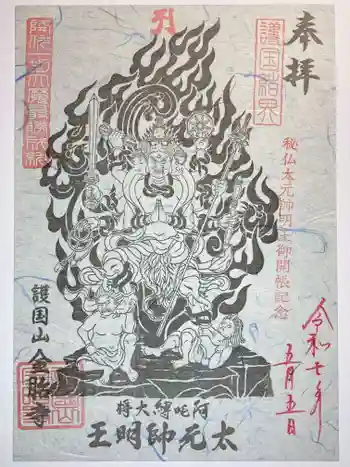 奉拝
謹国和界
秘仏太元帥明王御開帳記念
令和七年
五月五日
阿吒縛大将
太元帥明王
護国山
金勝寺